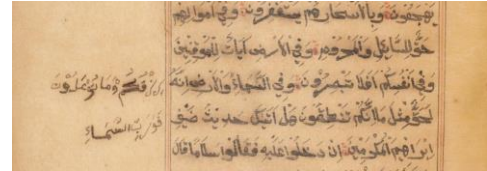 يهجعون وبالاسحار هم يستغفرون وفي اموالهم
حق للسائل والمحروم وفي الارض آيات للموقنين
وفي انفسكم افلا تبصرون وفي السماء والارض انه
لحق مثل ما انكم تنطقون هل اتيك حديث ضيف
ابراهيم المكرمين اذ دخلوا عليه فقالوا سلاما قال
رزقكم وما توعدون
فورب السماء